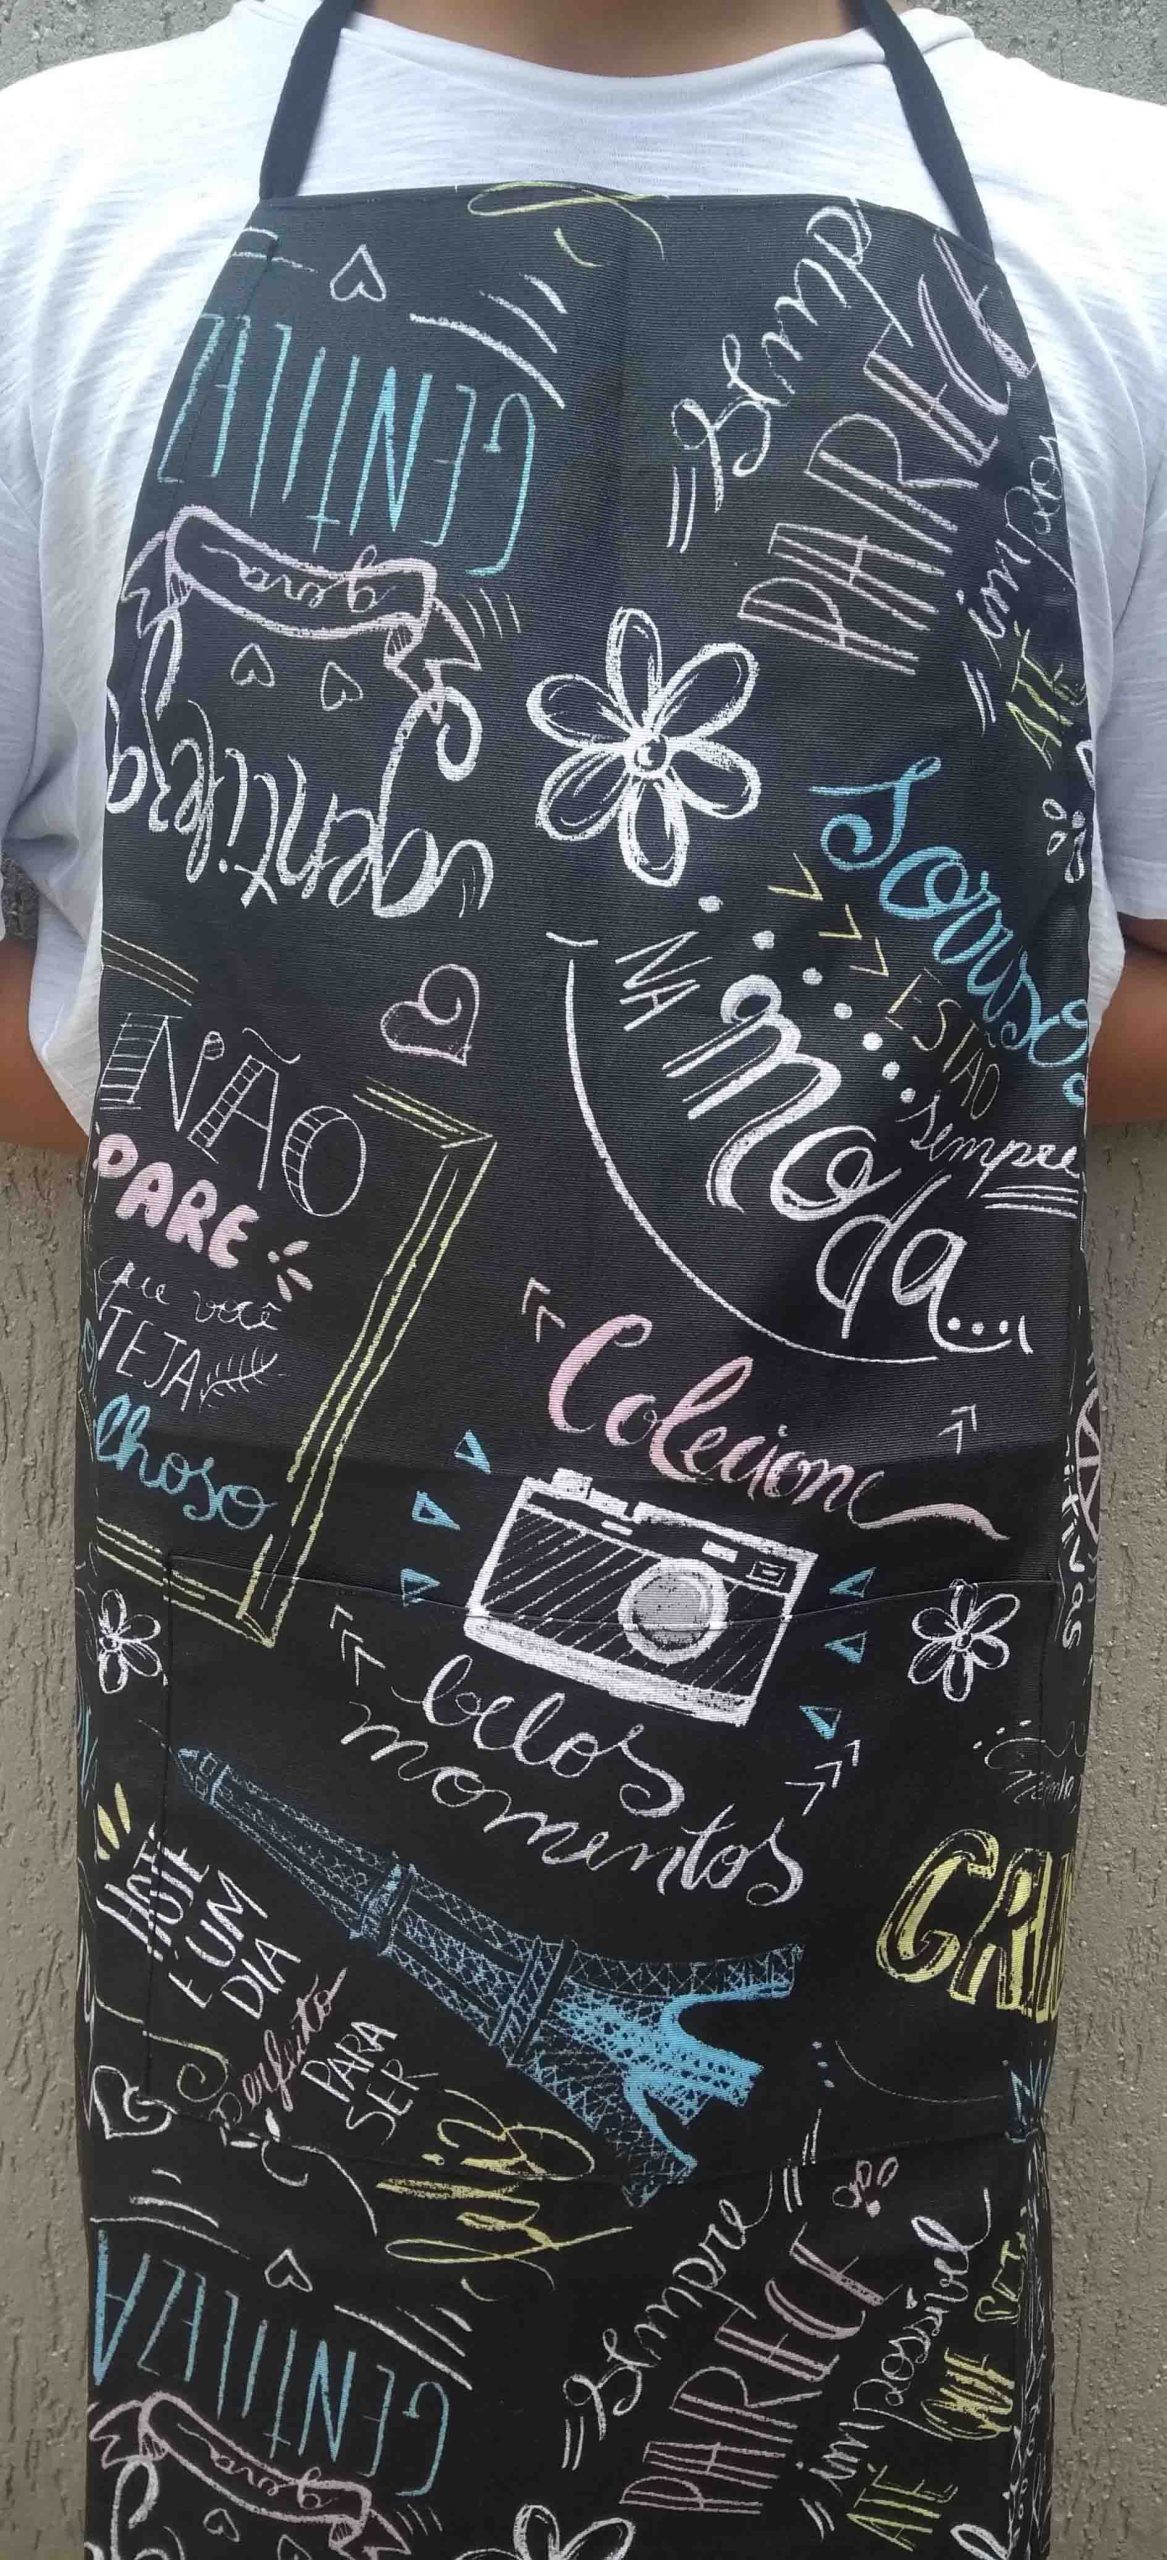 GENTILEZA
gera
gentileza
Sempre
PARECE
impos
ATÉ
Sorrisos
ESTÃO
sempre
NA
moda...
NÃO
PARE
que você
TEJA
lhoso
Colecione
belos
momentos
HOJE
É UM
DIA
perfeito
PARA
SER
feliz
GENTILEZA
gera
Sempre
PARECE
impossível
ATÉ QUE